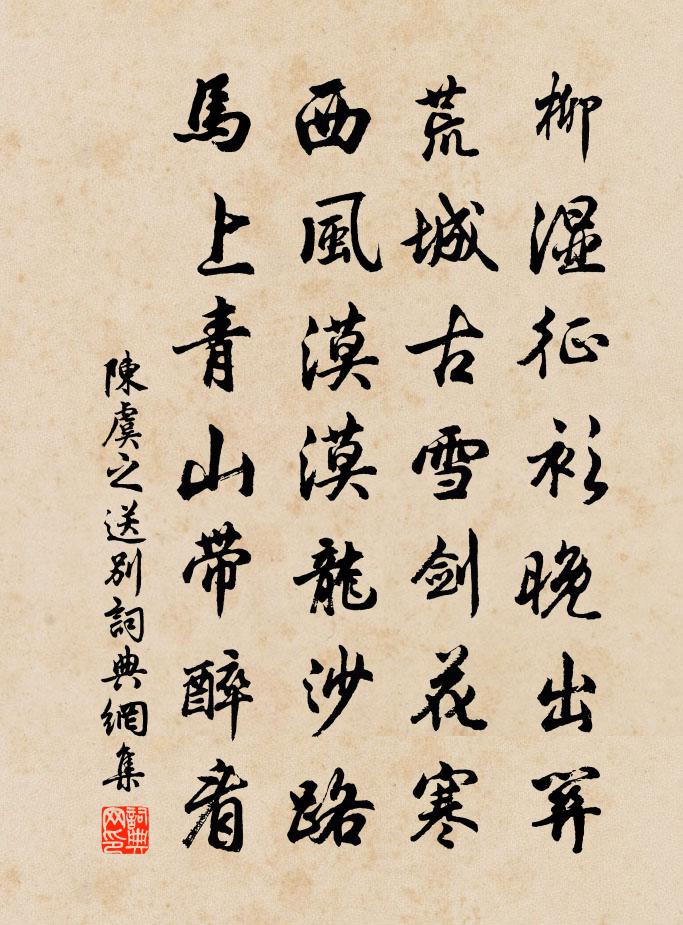 柳湿征衫晚出关
荒城古雪剑花寒
西風漠漠龍沙路
馬上青山带醉看
陳虞之送别詞典網集
詞典网印